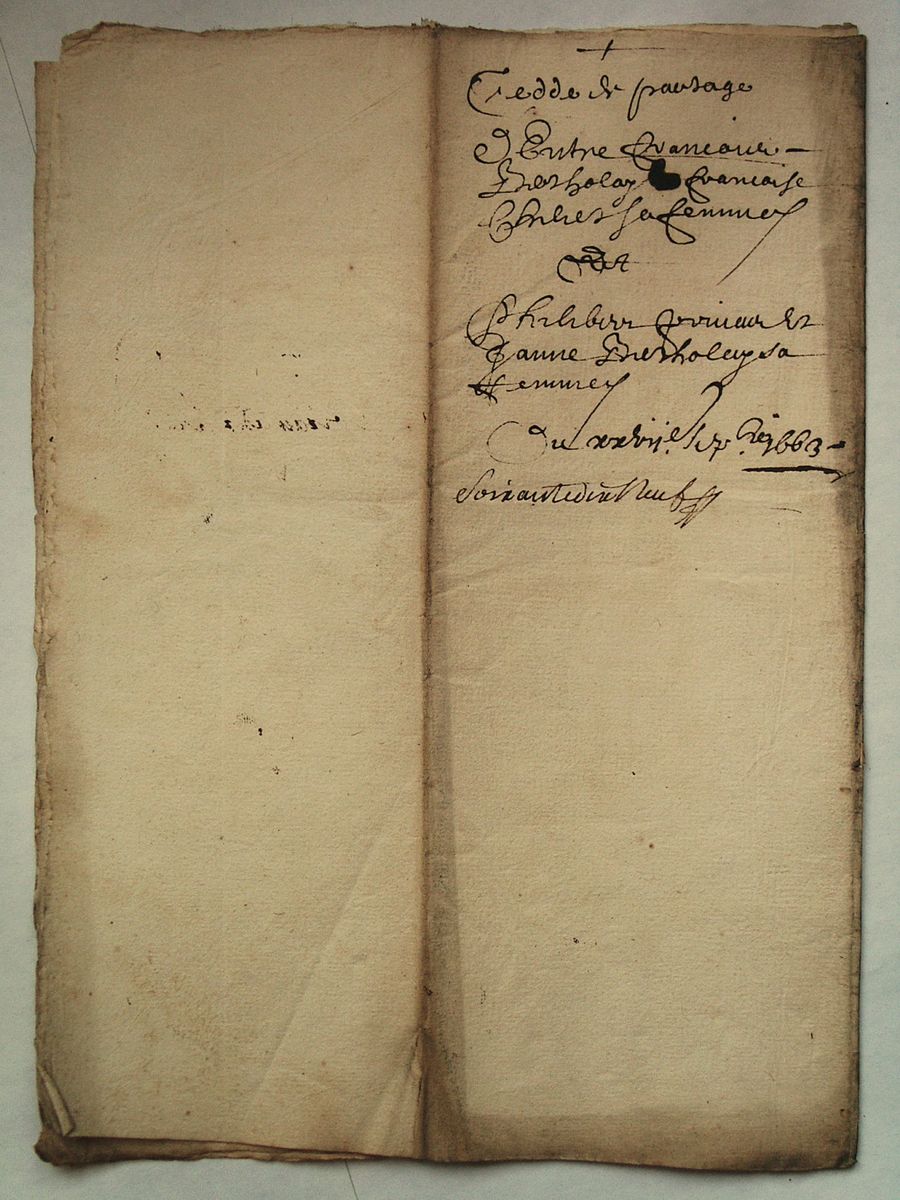 Cedde de partage
D'Entre francois
Bertholay francoise
Philiber sa femme
Et
Philiber et
Janne Bertholay sa
femme
Du xxvij.e 7.bre 1663
Soixante dix Neuf